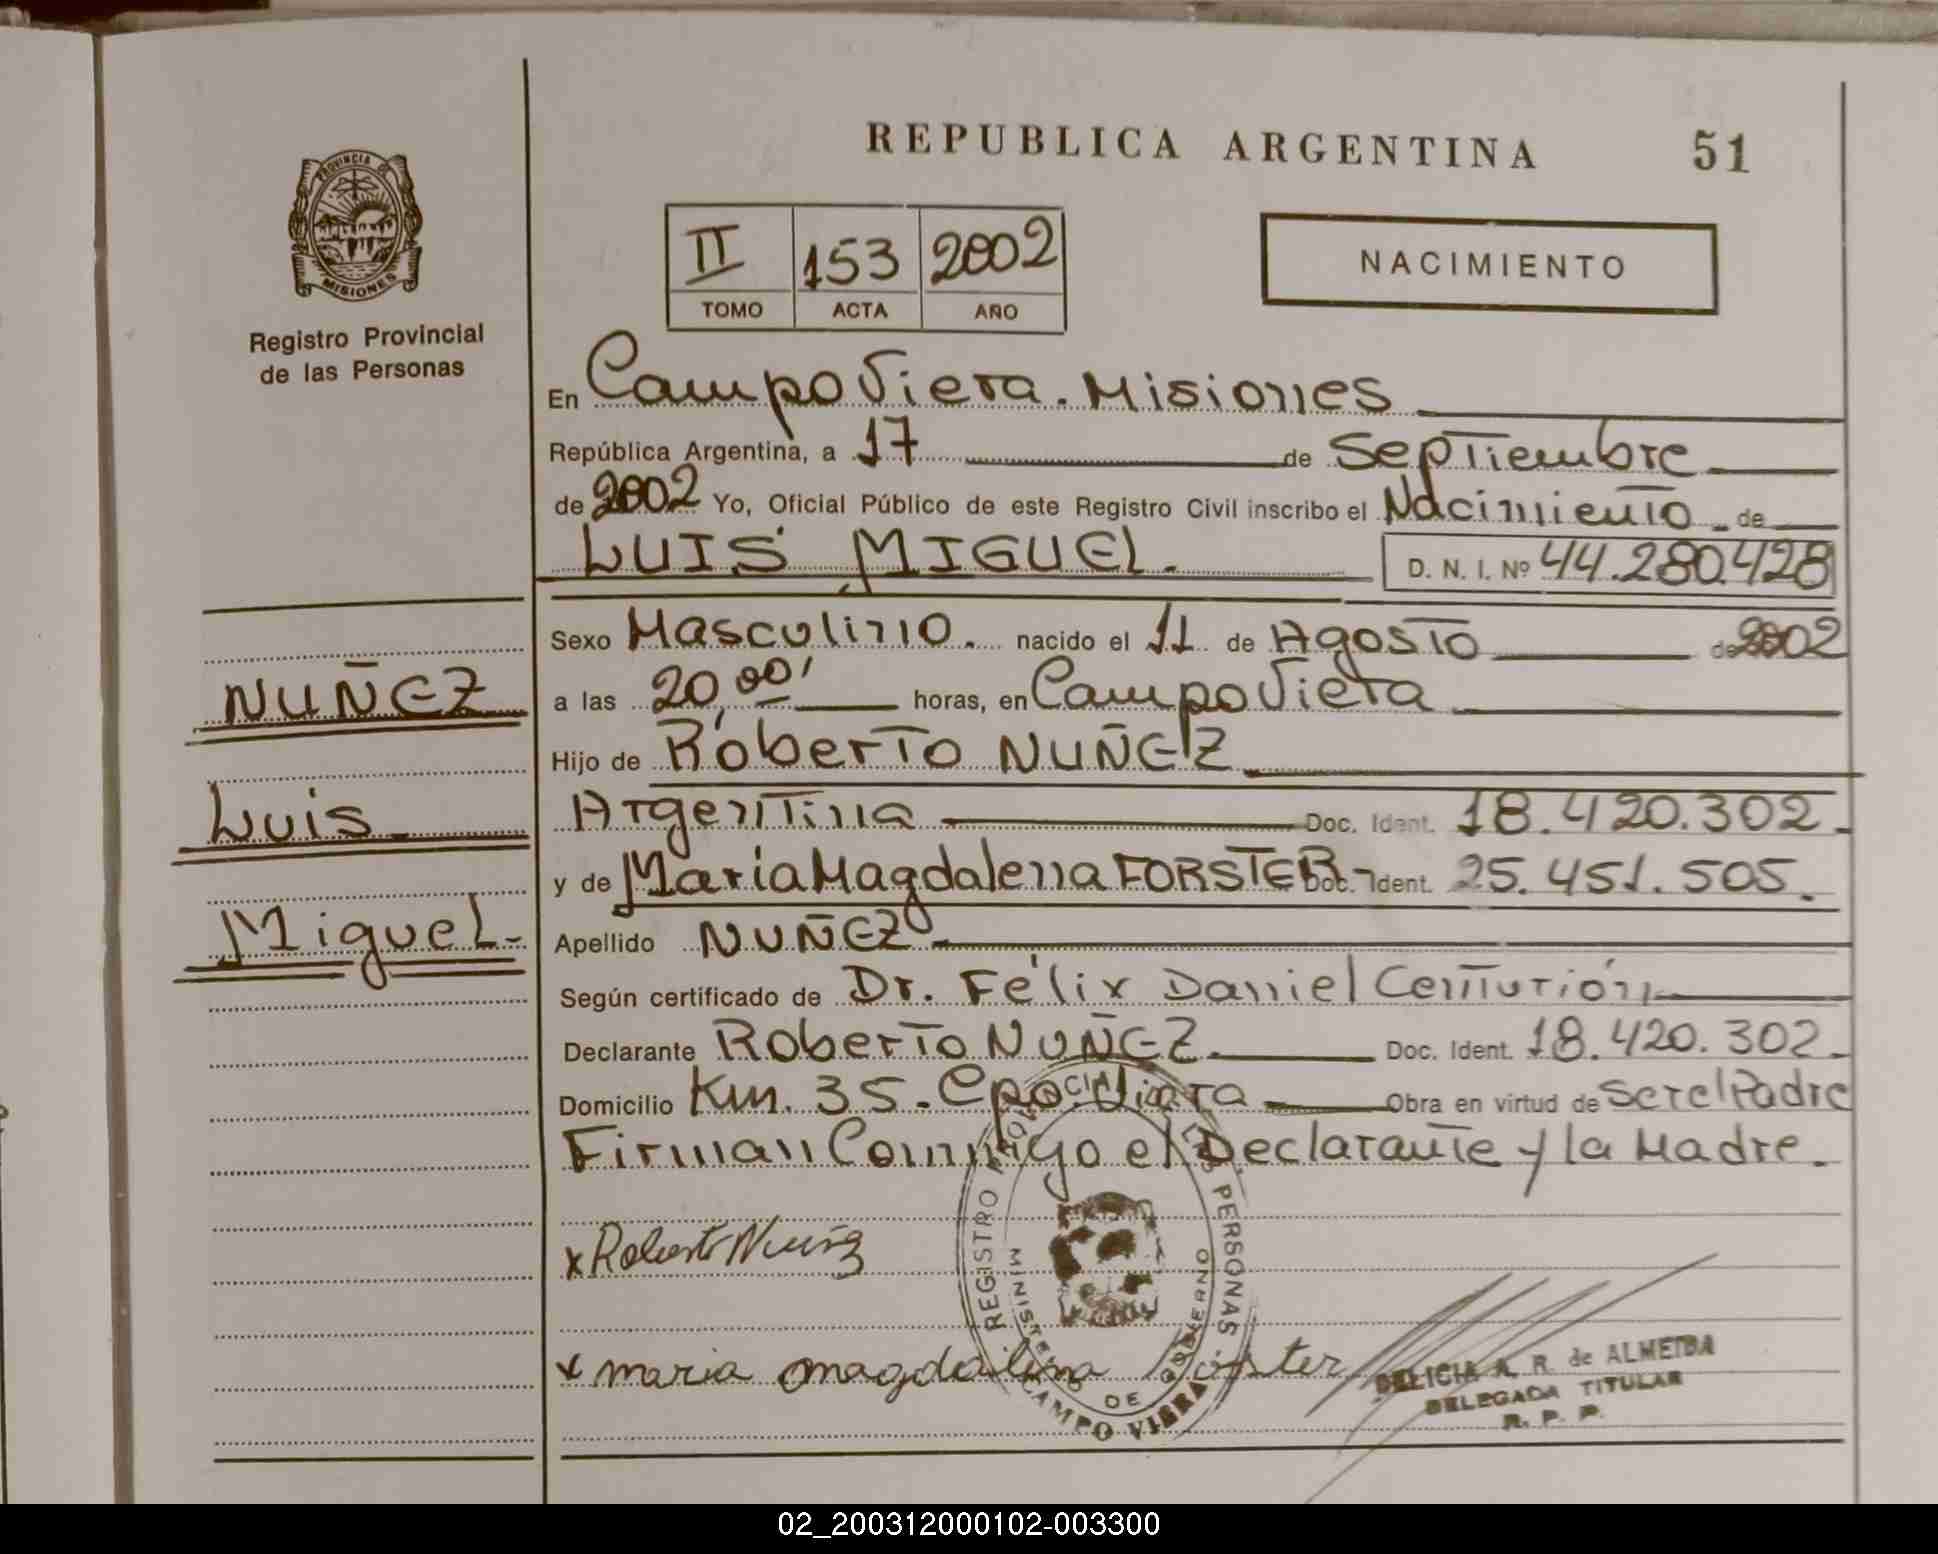 REPUBLICA ARGENTINA 51
PROVINCIA DE
MISIONES
Registro Provincial
de las Personas
II 153 2002
TOMO ACTA AÑO
NACIMIENTO
En Campo Viera. Misiones
República Argentina, a 17 de Septiembre
de 2002 Yo, Oficial Público de este Registro Civil inscribo el Nacimiento de
LUIS MIGUEL. D. N. I. Nº 44.280.428
Sexo Masculino. nacido el 11 de Agosto de 2002
NUÑEZ
a las 20,00' horas, en Campo Viera
Hijo de Roberto NUÑEZ
Luis
Argentina Doc. Ident. 18.420.302.
y de Maria Magdalena FORSTER- Doc. Ident. 25.451.505.
Miguel.
Apellido NUÑEZ
Según certificado de Dr. Félix Daniel Centurión
Declarante Roberto NUÑEZ. Doc. Ident. 18.420.302.
Domicilio Km. 35. Cpo. Viera Obra en virtud de Ser el Padre
Firman Conmigo el Declarante y la Madre.
x Roberto Nuñez
x maria magdalena Forster
REGISTRO PROVINCIAL DE LAS PERSONAS
MINISTERIO DE GOBIERNO
CAMPO VIERA
DELICIA A. R. de ALMEIDA
DELEGADA TITULAR
R. P. P.
02_200312000102-003300